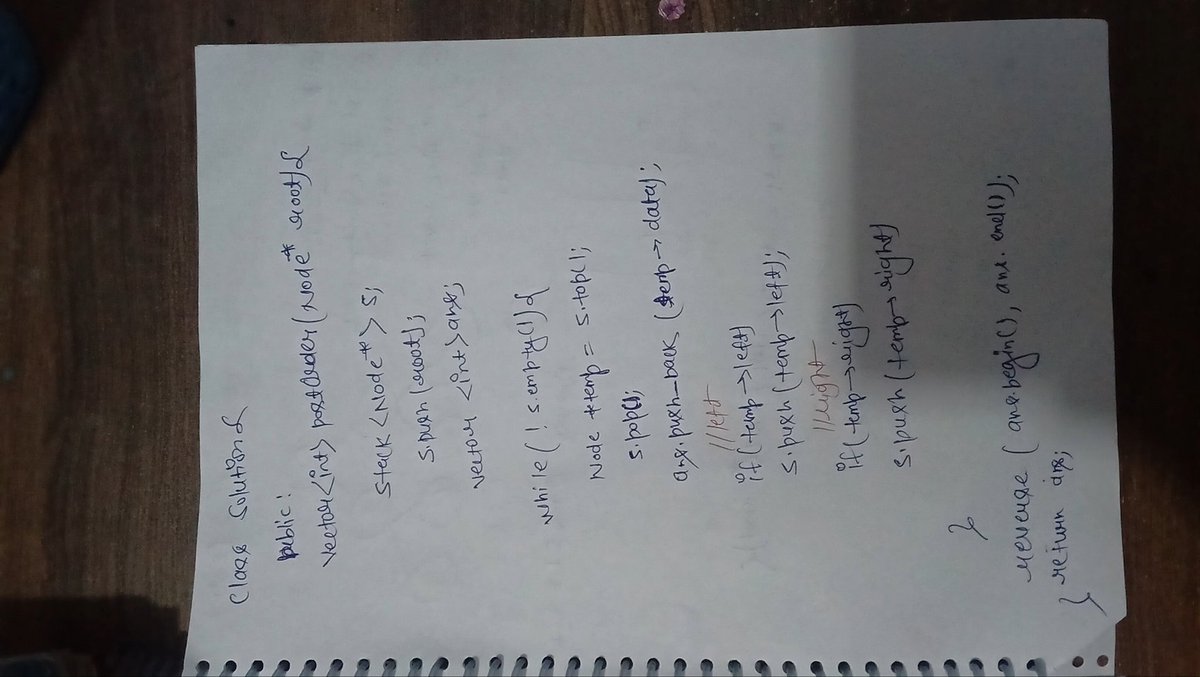 class Solution{
public:
vector<int> postOrder(Node* root){
stack<Node*> s;
s.push(root);
vector<int>ans;
while(!s.empty()){
Node *temp = s.top();
s.pop();
ans.push_back(temp->data);
//left
if(temp->left)
s.push(temp->left);
//right
if(temp->right)
s.push(temp->right)
}
reverse(ans.begin(), ans.end());
return ans;
}